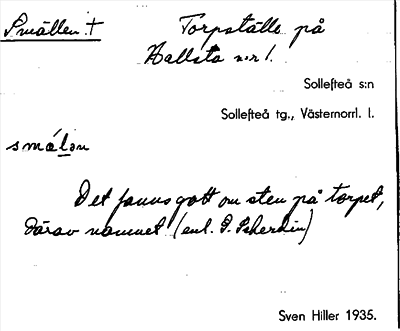 Smällen †
Torpställe på
Hallsta n:r 1.
Sollefteå s:n
Sollefteå tg., Västernorrl. l.
smálən
Det fanns gott om sten på torpet,
därav namnet (enl. P.
Sven Hiller 1935.